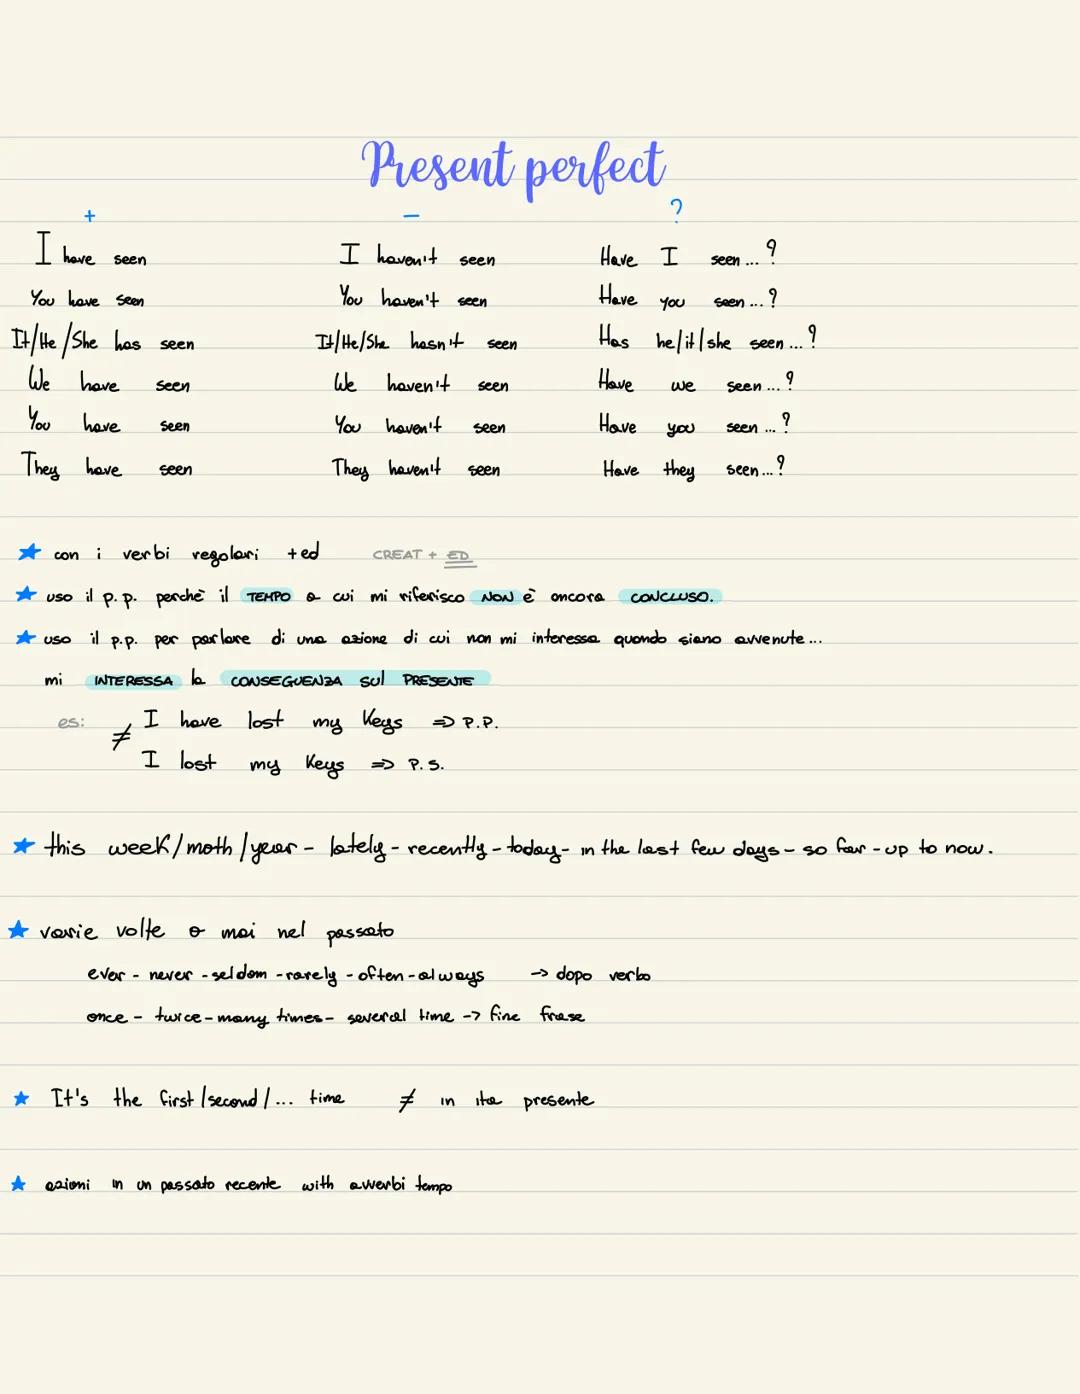 Present perfect
+ – ?
I have seen I haven't seen Have I seen...?
You have seen You haven't seen Have you seen...?
It/He/She has seen It/He/She hasn't seen Has he/it/she seen...?
We have seen We haven't seen Have we seen...?
You have seen You haven't seen Have you seen...?
They have seen They haven't seen Have they seen...?
★ con i verbi regolari +ed CREAT + ED
★ uso il p.p. perchè il TEMPO a cui mi riferisco NON è ancora CONCLUSO.
★ uso il p.p. per parlare di una azione di cui non mi interessa quando siano avvenute...
mi INTERESSA la CONSEGUENZA sul PRESENTE
es: ≠ I have lost my keys => P.P.
I lost my keys => P.S.
★ this week/moth/year - lately - recently - today - in the last few days - so far - up to now.
★ varie volte o mai nel passato
ever - never - seldom - rarely - often - always -> dopo verbo
once - twice - many times - several time -> fine frase
★ It's the first/second/... time ≠ in ita presente
★ azioni in un passato recente with avverbi tempo